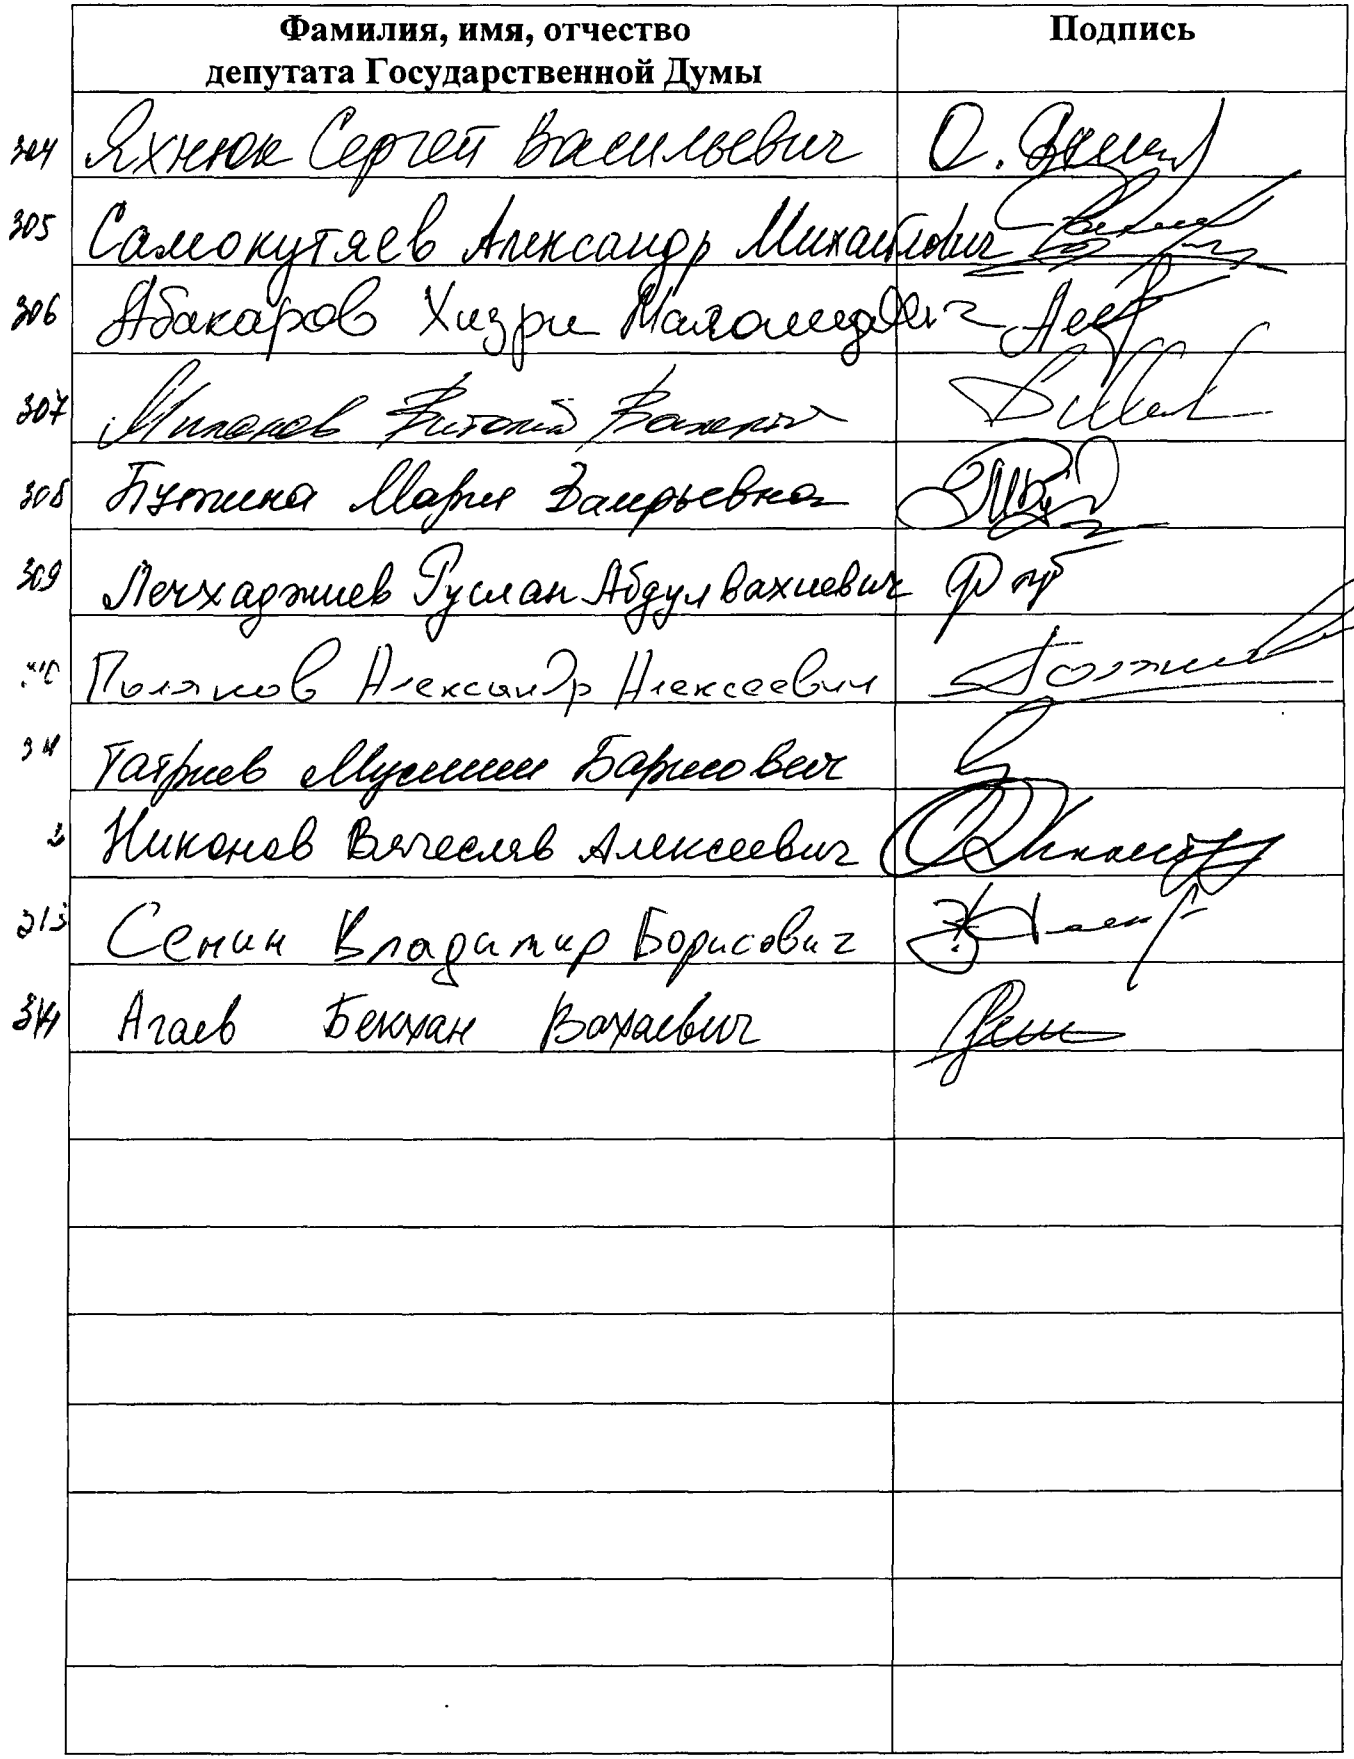 Фамилия, имя, отчество Подпись
депутата Государственной Думы
304 Яхнюк Сергей Васильевич
305 Самокутяев Александр Михайлович
306 Абакаров Хизри Магомедович
307 Милонов Виталий Валент
308 Бутина Мария Валерьевна
309 Лечхаджиев Руслан Абдулвахиевич
Поляков Александр Алексеевич
311 Татриев Муслим Барисович
2 Никонов Вячеслав Алексеевич
313 Сенин Владимир Борисович
314 Агаев Бекхан Вахаевич